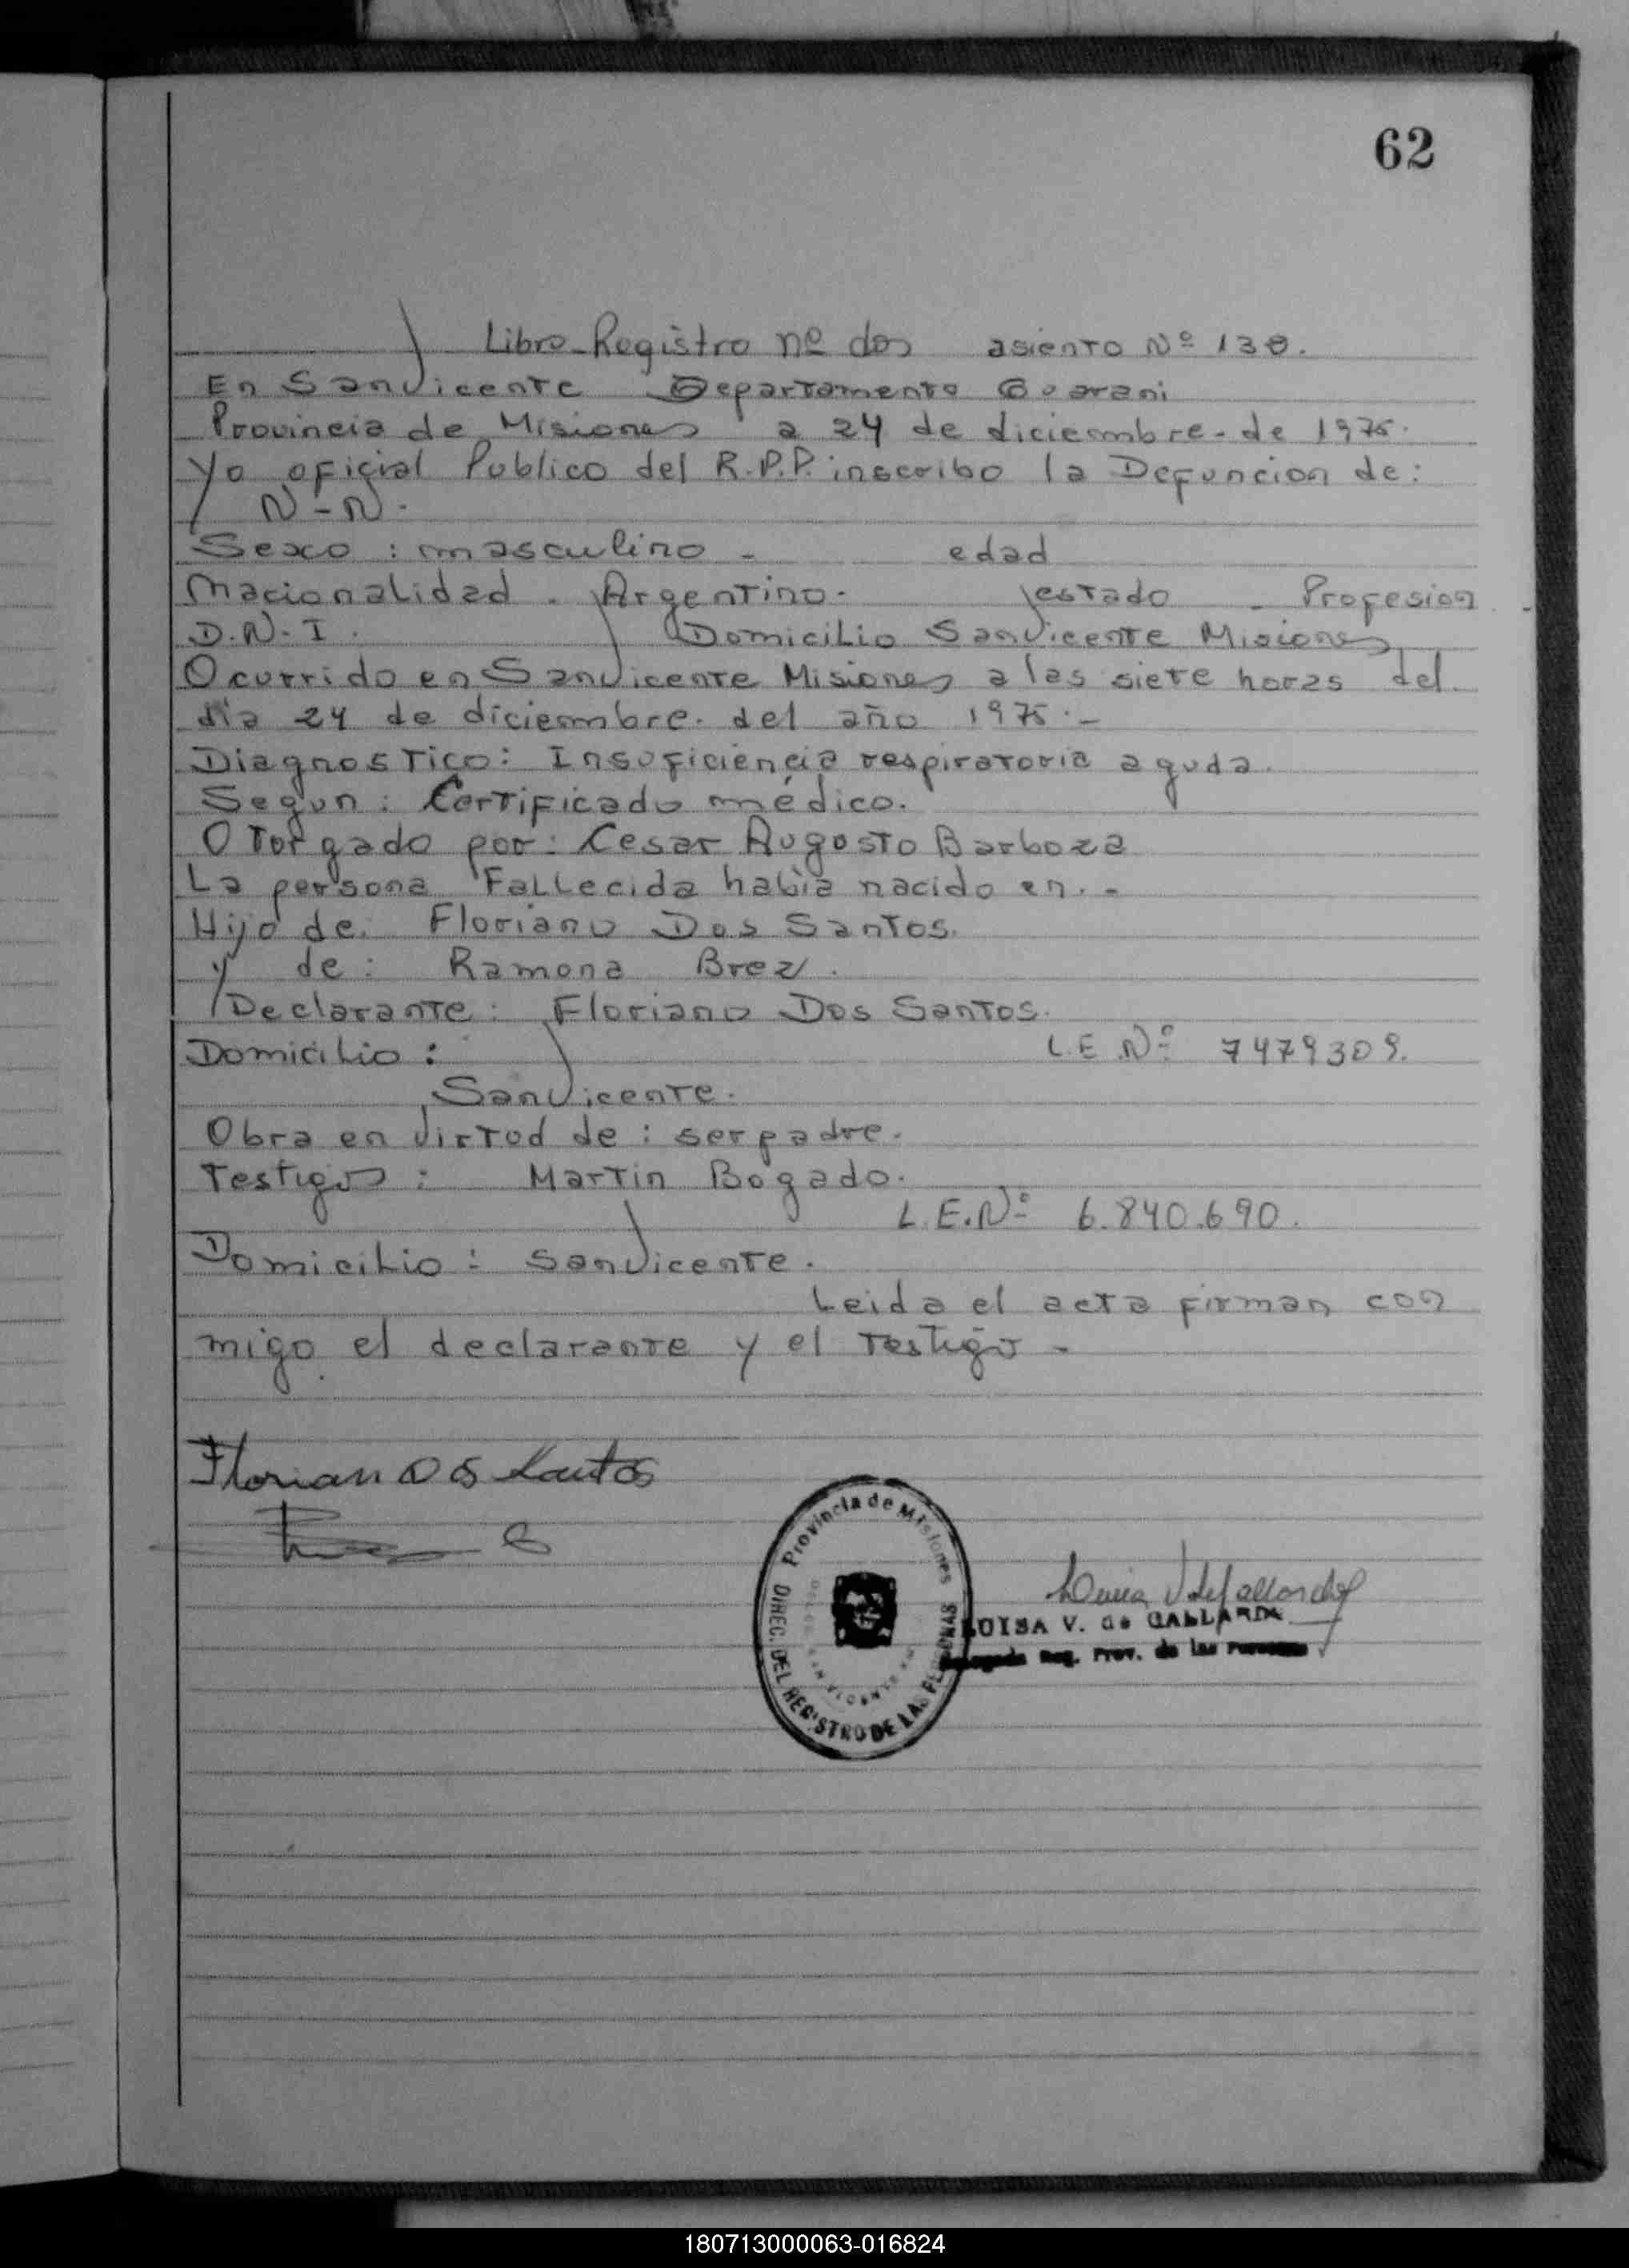 62
Libro Registro nº dos asiento Nº 130.
En San Vicente Departamento Guarani
Provincia de Misiones a 24 de diciembre - de 1975.
Yo oficial Publico del R.P.P. inscribo la Defuncion de:
N-N.
Sexo : masculino - edad
Nacionalidad . Argentino. estado - Profesion -
D.N.I. Domicilio San Vicente Misiones
Ocurrido en San Vicente Misiones a las siete horas del.
dia 24 de diciembre. del año 1975.-
Diagnostico: Insuficiencia respiratoria aguda.
Segun: Certificado médico.
Otorgado por: Cesar Augosto Barboza
La persona Fallecida había nacido en. -
Hijo de. Floriano Dos Santos.
y de: Ramona Brez.
Declarante: Floriano Dos Santos.
Domicilio : L.E Nº 7479309.
San Vicente.
Obra en virtud de : ser padre.
Testigo : Martin Bogado.
L.E.Nº 6.840.690.
Domicilio : San Vicente.
Leida el acta firman con
migo el declarante y el testigo -
Florian O Os Santos
Provincia de Misiones
DIREC. DEL REGISTRO DE LAS PERSONAS
LUISA V. de GALLARDO
Reg. Prov. de las Personas
180713000063-016824